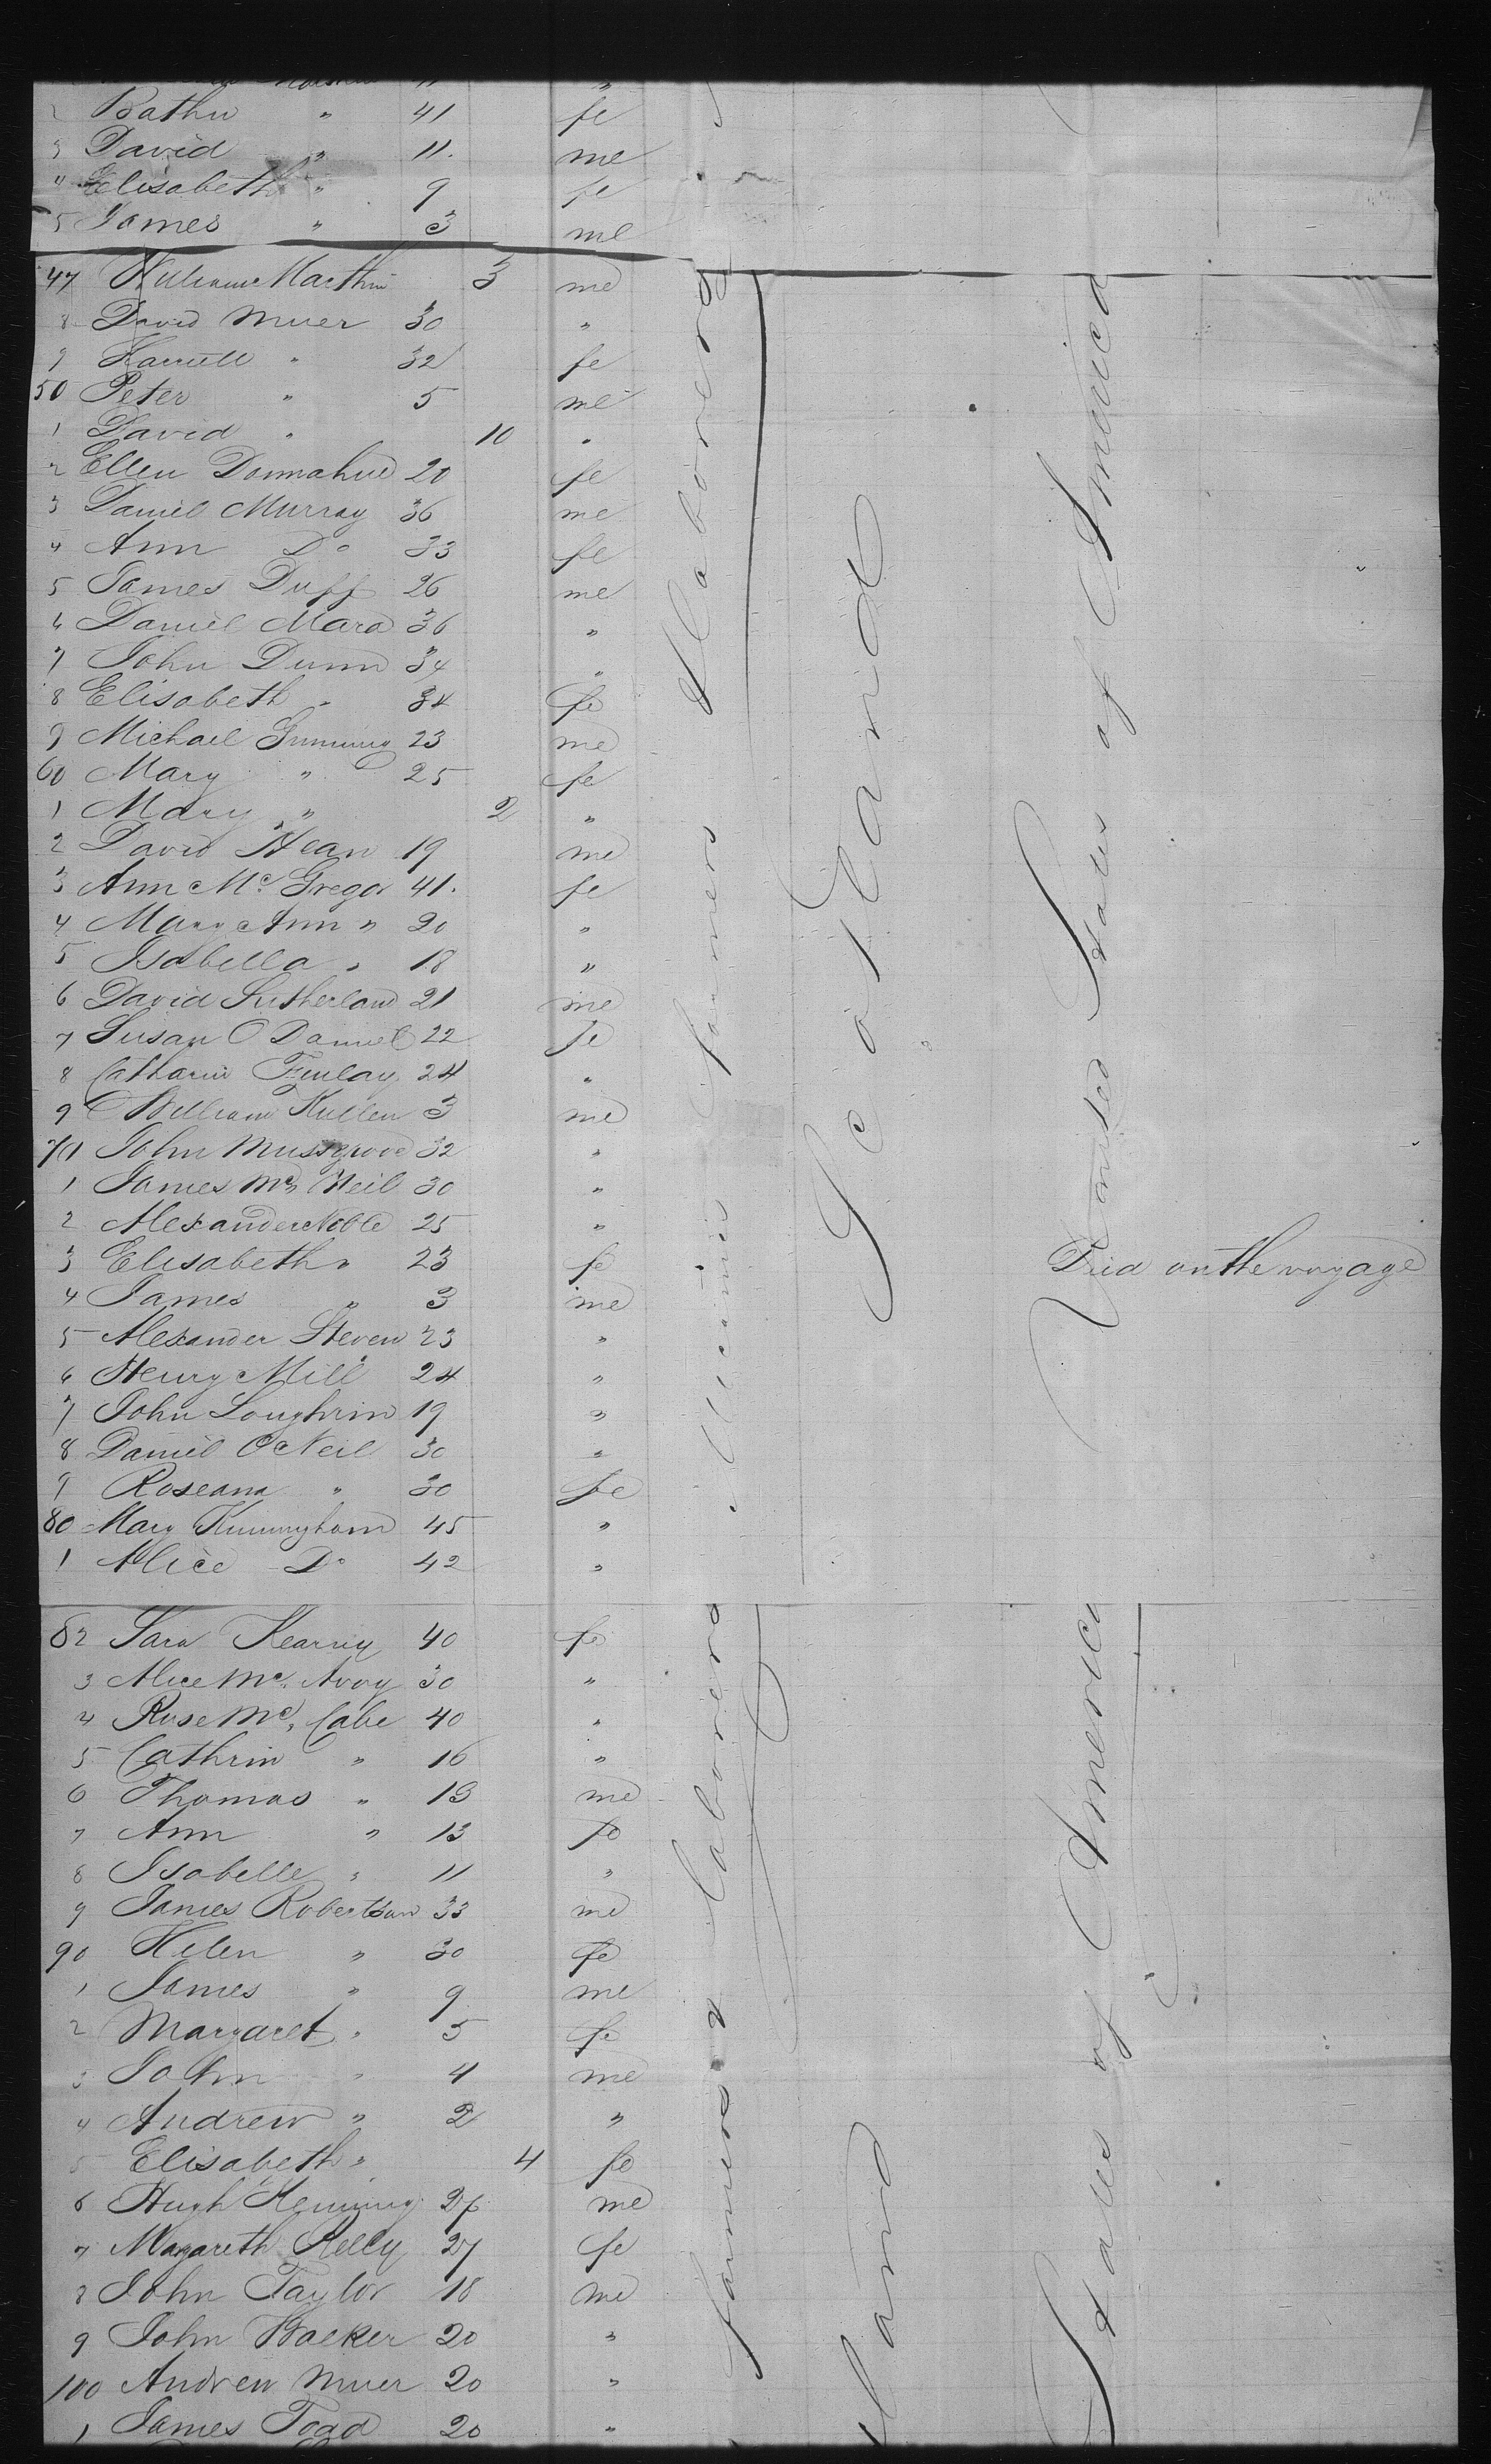 2 Bathu " 41 fe
3 David " 11. me
4 Elisabeth " 9 fe
5 James " 3 me
47 William Marthin 3 me
8 David Muer 30 "
9 Harriell " 32 fe
50 Peter " 5 me
1 David " 10 "
2 Ellen Donnahue 20 fe
3 Daniel Murray 36 me
4 Ann Do 33 fe
5 James Duff 26 me
6 Daniel Mara 36 "
7 John Dunn 34 "
8 Elisabeth " 34 fe
9 Michael Gunning 23 me
60 Mary " 25 fe
1 Mary " 2 "
2 David Hean 19 me
3 Ann Mc. Gregor 41. fe
4 Mary Ann " 20 "
5 Isabella " 18 "
6 David Sutherland 21 me
7 Susan O Daniel 22 fe
8 Catharin Finlay 24 "
9 William Kullen 3 me
70 John Mussgrove 32 "
1 James Mc Neil 30 "
2 Alexander Noble 25 "
3 Elisabeth " 23 fe Died on the voyage
4 James " 3 me
5 Alexander Steven 23 "
6 Henry Mill 24 "
7 John Loughrin 19 "
8 Daniel O Neil 30 "
9 Roseana " 30 fe
80 Mary Kunningham 45 "
1 Alice Do 42 "
Farmers & Laborers
Scotland
United States of America
82 Sara Kearny 40 fe
3 Alice Mc. Avoy 30 "
4 Rose Mc. Cabe 40 "
5 Cathrin " 16 "
6 Thomas " 13 me
7 Ann " 13 fe
8 Isabelle " 11 "
9 James Robertson 33 me
90 Helen " 30 fe
1 James " 9 me
2 Margaret " 5 fe
3 John " 4 me
4 Andrew " 2 "
5 Elisabeth " 4 fe
6 Hugh Kenning 27 me
7 Margareth Kelly 27 fe
8 John Taylor 18 me
9 John Walker 20 "
100 Andrew Muer 20 "
1 James Todd 20 "
Farmers & Laborers
land
States of America